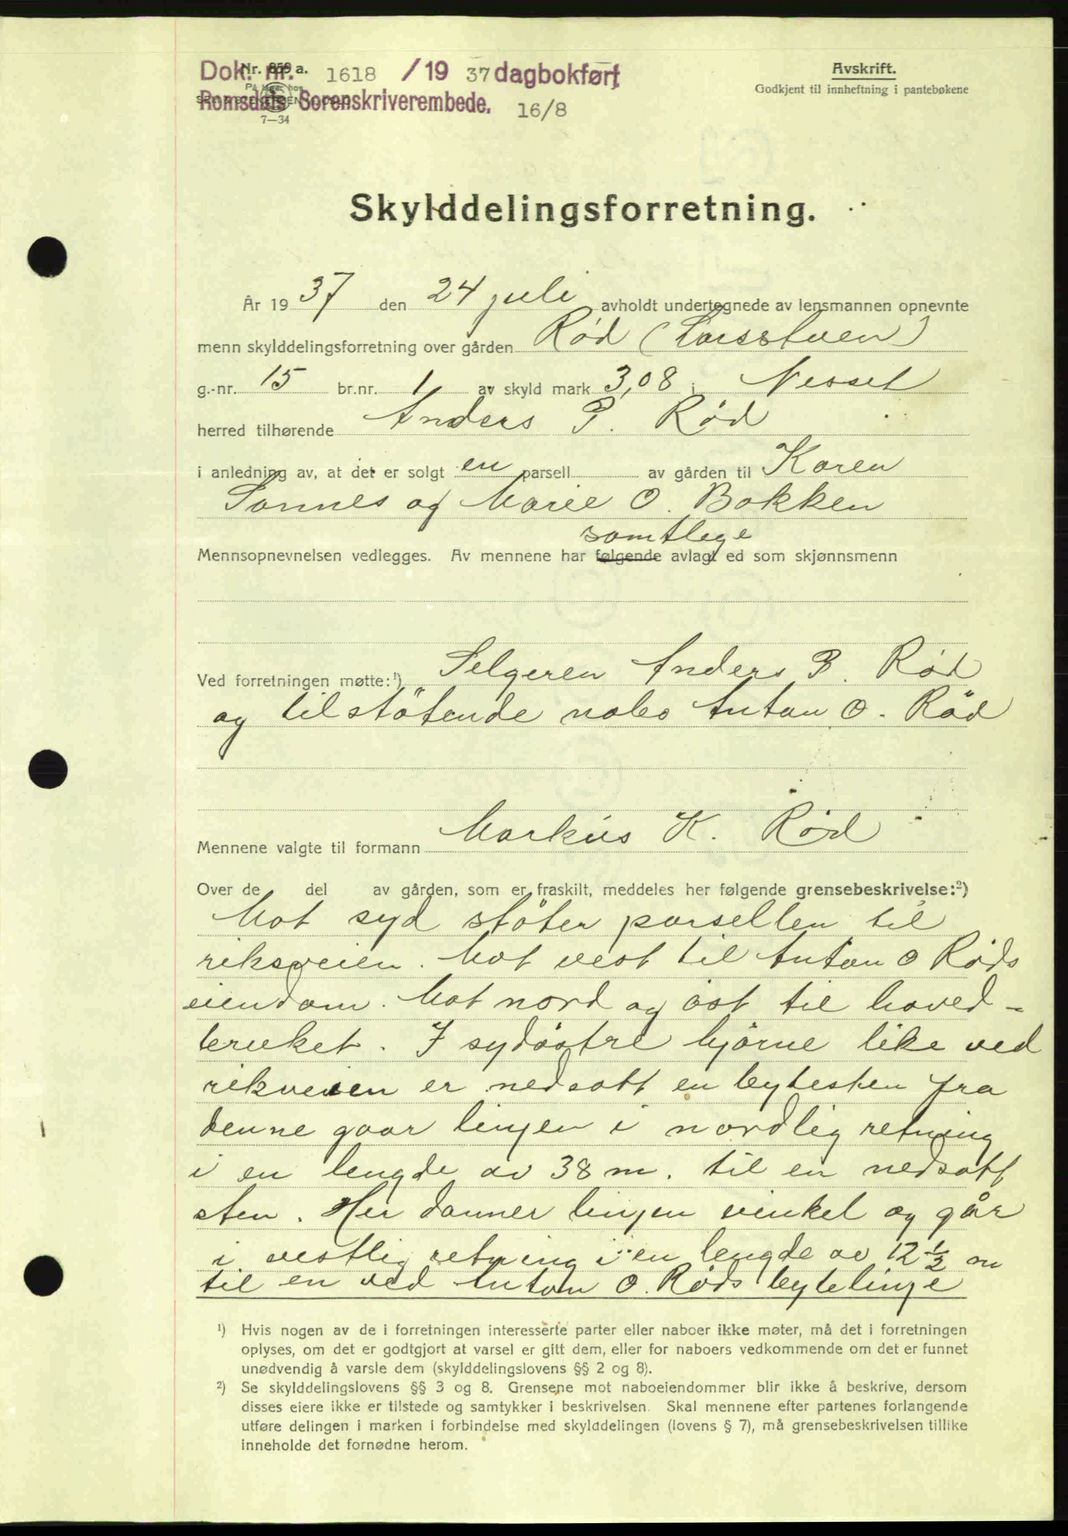 Dok. nr. 1618 /19 37 dagbokført
Romsdals Sorenskriverembede. 16/8
Nr. 859 a.
7—34
Avskrift.
Godkjent til innheftning i pantebøkene
Skylddelingsforretning.
År 19 37 den 24 juli avholdt undertegnede av lensmannen opnevnte
menn skylddelingsforretning over gården Rød (Larsstuen)
g.-nr. 15 br.nr. 1 av skyld mark 3,08 i Nesset
herred tilhørende Anders P. Rød
i anledning av, at det er solgt en parsell av gården til Karen
Sannes og Marie O. Bakken
samtlege
Mennsopnevnelsen vedlegges. Av mennene har følgende avlagt ed som skjønnsmenn
Ved forretningen møtte:¹) Selgeren Anders P. Rød
og tilstötende nabo Anton O. Röd
Mennene valgte til formann Markus K. Rød
Over de del av gården, som er fraskilt, meddeles her følgende grensebeskrivelse:²)
Mot syd støter parsellen til
riksveien. Mot vest til Anton O Røds
eiendom. Mot nord og öst til hoved-
bruket. I sydöstre hjörne like ved
rikveien er nedsatt en bytesten fra
denne gaar linjen i nordlig retning
i en lengde av 38 m. til en nedsatt
sten. Her danner linjen vinkel og går
i vestlig retning i en lengde av 12 ½ m
til en ved Anton O. Røds bytelinje
¹) Hvis nogen av de i forretningen interesserte parter eller naboer ikke møter, må det i forretningen
oplyses, om det er godtgjort at varsel er gitt dem, eller for naboers vedkommende om det er funnet
unødvendig å varsle dem (skylddelingslovens §§ 2 og 8).
²) Se skylddelingslovens §§ 3 og 8. Grensene mot naboeiendommer blir ikke å beskrive, dersom
disses eiere ikke er tilstede og samtykker i beskrivelsen. Skal mennene efter partenes forlangende
utføre delingen i marken i forbindelse med skylddelingen (lovens § 7), må grensebeskrivelsen tillike
inneholde det fornødne herom.